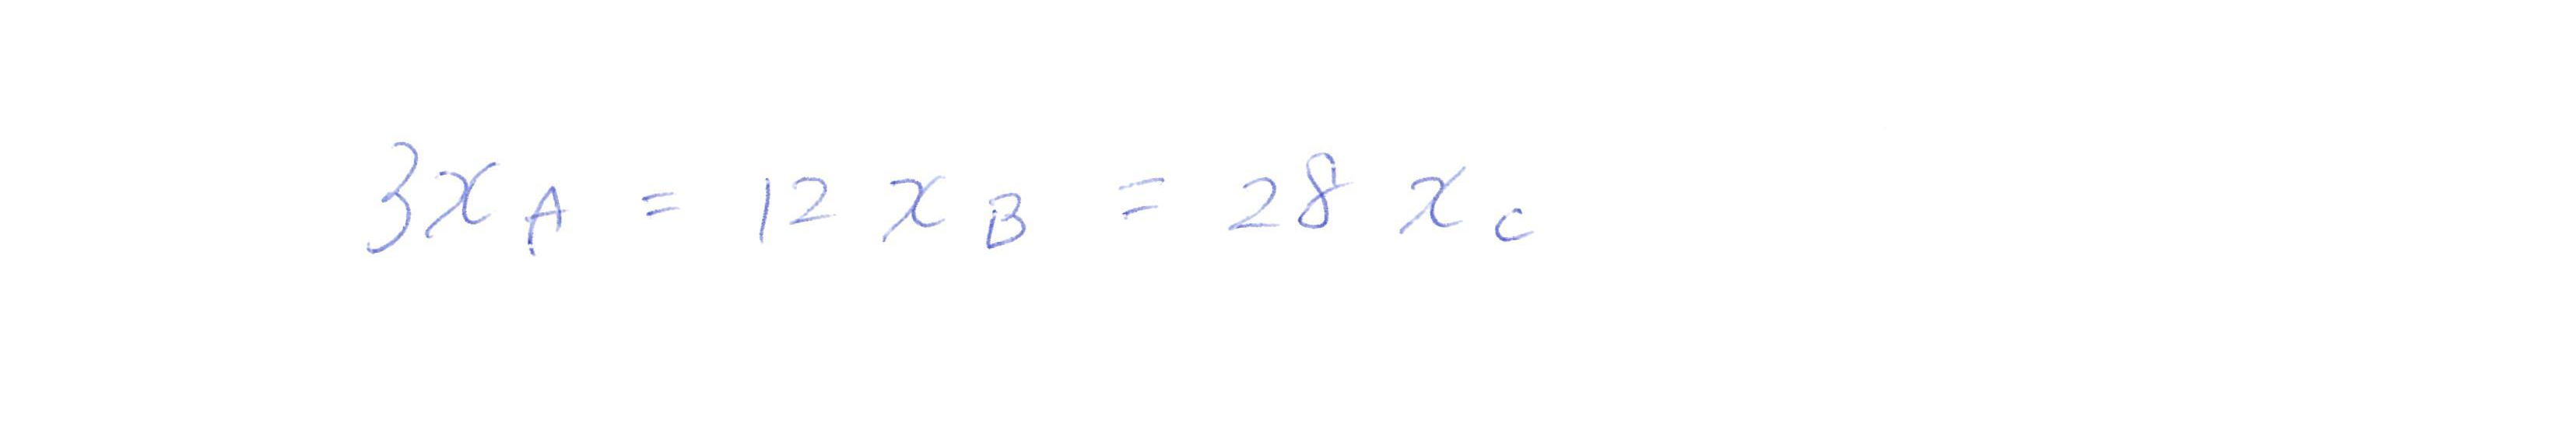 3x_A = 12 x_B = 28 x_C